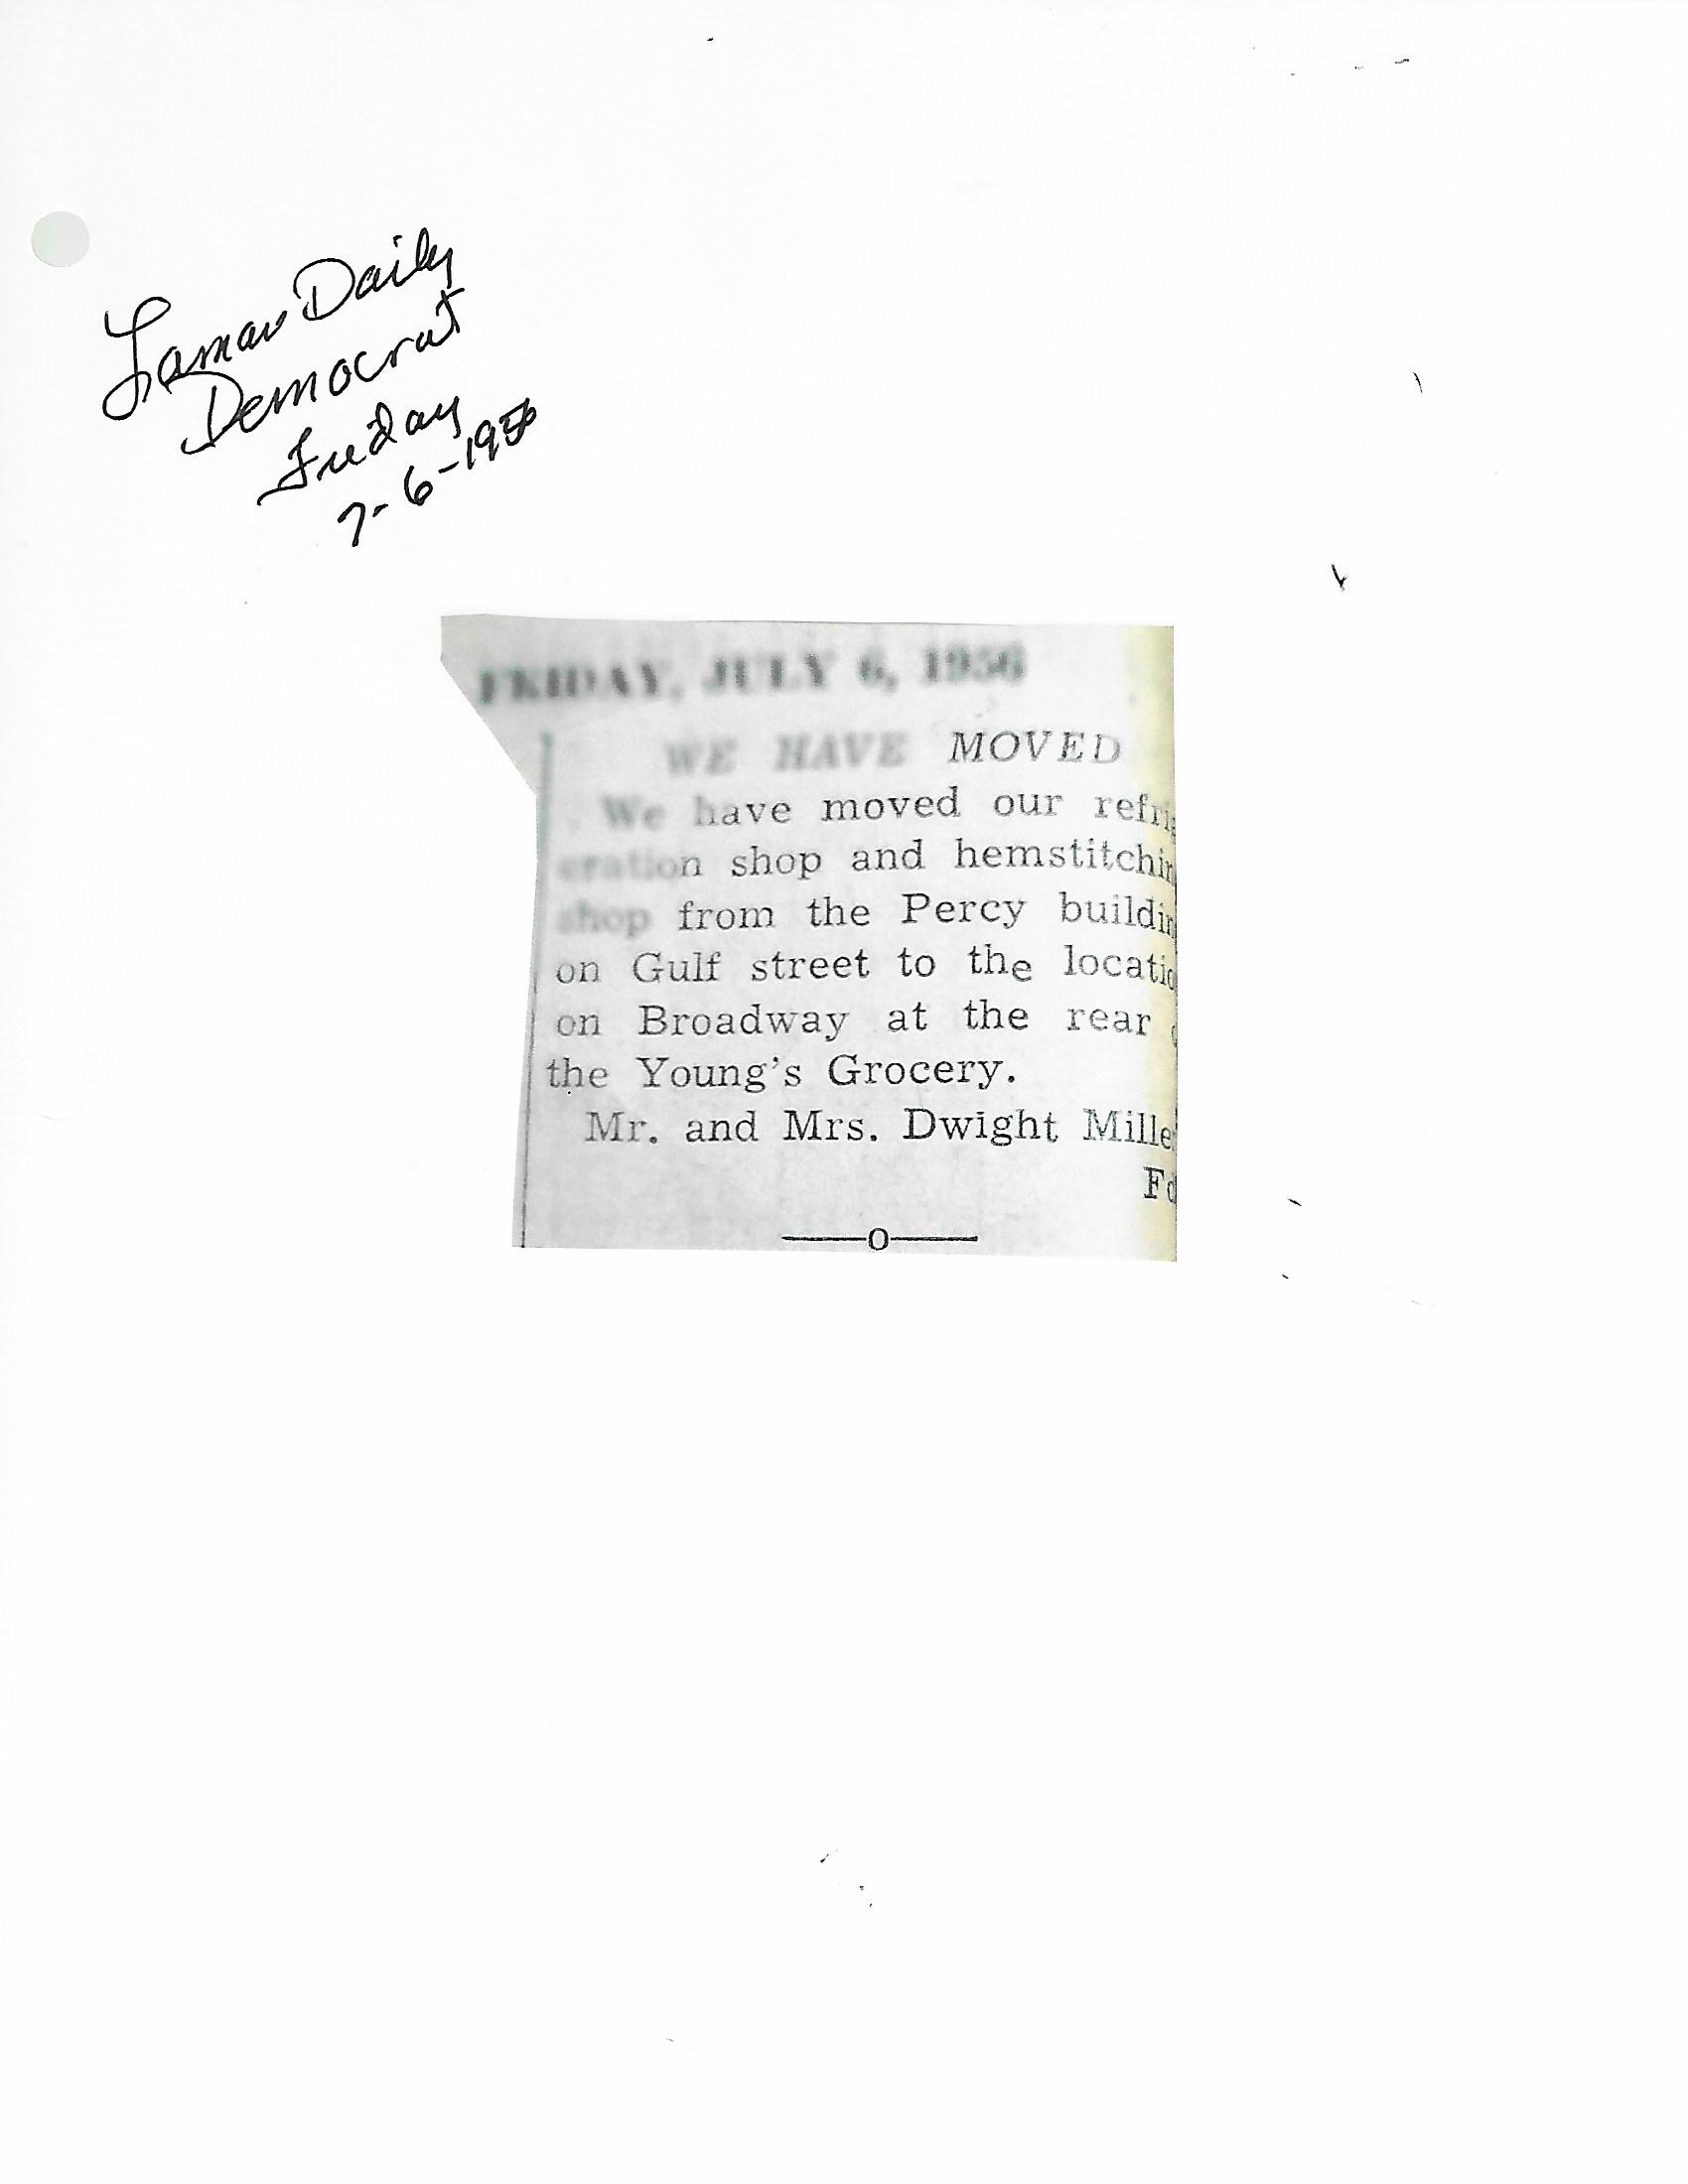 Lamar Daily
Democrat
Friday
7-6-1956
FRIDAY, JULY 6, 1956
WE HAVE MOVED
We have moved our refri
eration shop and hemstitchin
shop from the Percy buildin
on Gulf street to the locatio
on Broadway at the rear
the Young's Grocery.
Mr. and Mrs. Dwight Mille
Fd
—o—